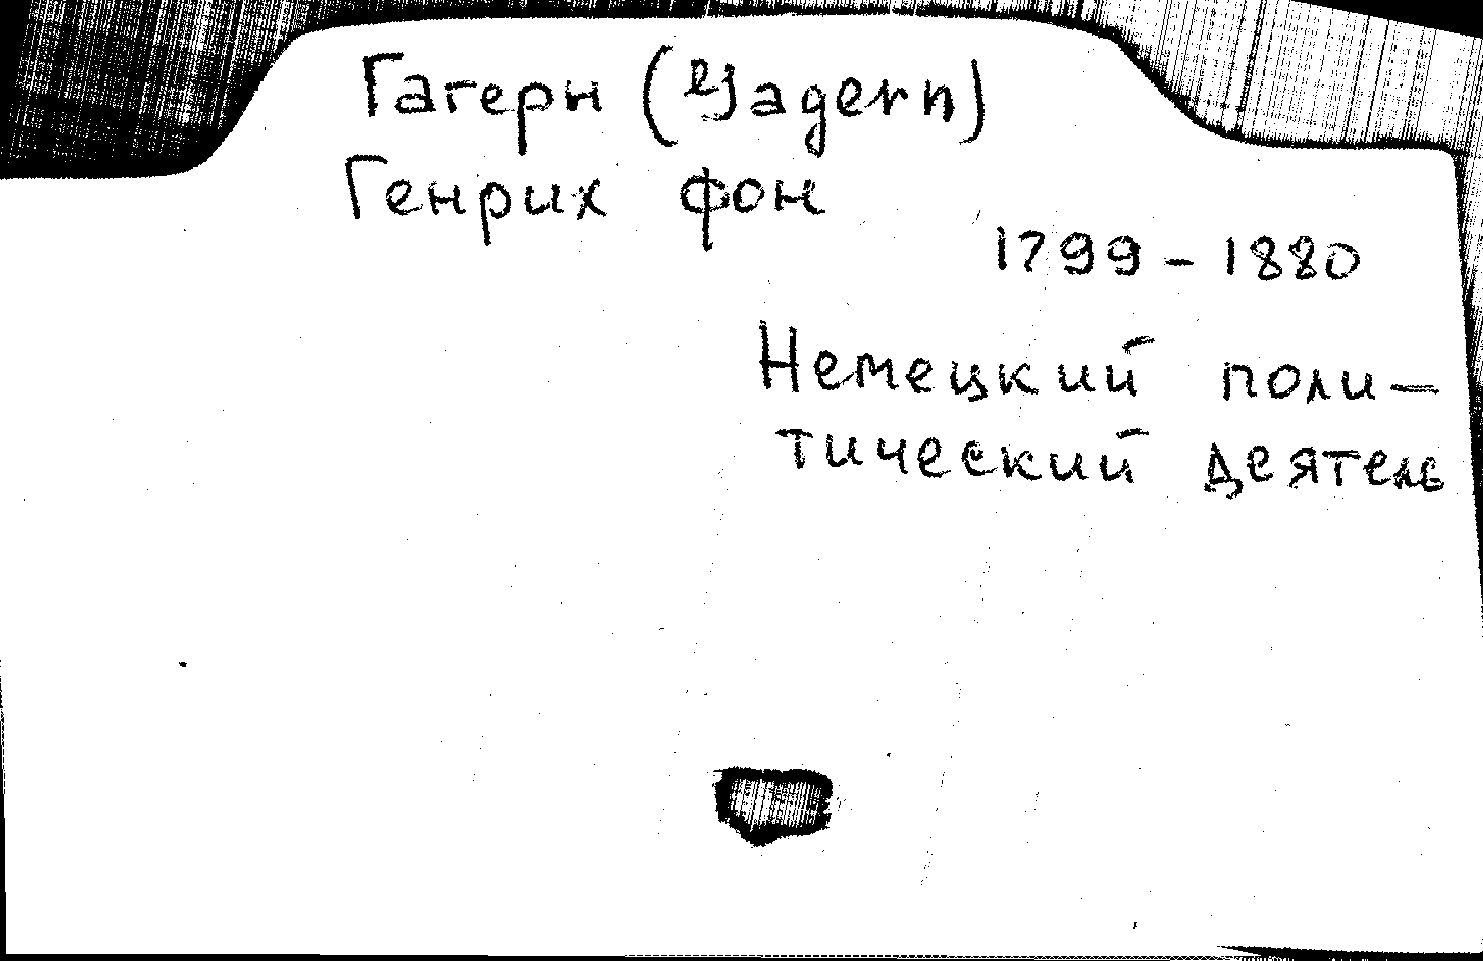 Гагерн (Gagern)
Генрих фон
1799 - 1880
Немецкий поли-
тический деятель